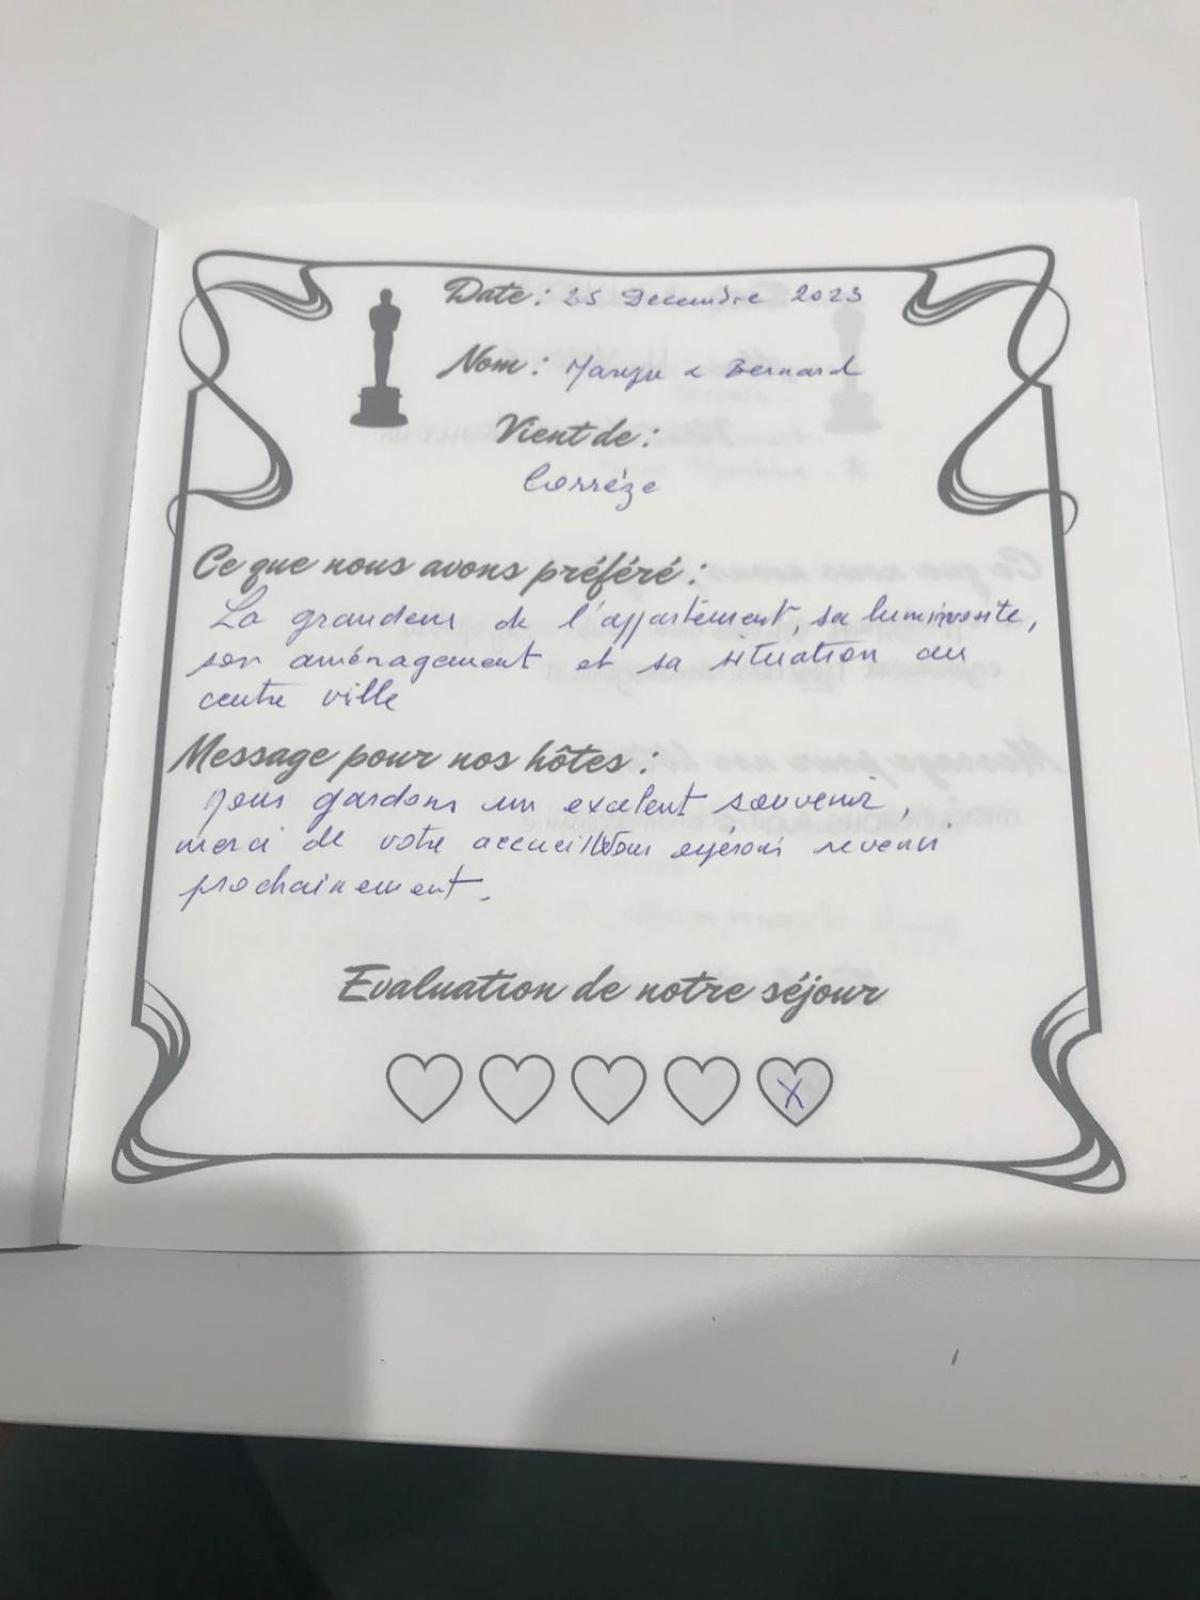 Date : 25 Decembre 2023
Nom : & Bernard
Vient de :
Corrèze
Ce que nous avons préféré :
La grandeur de l'appartement, sa luminosite,
son aménagement et sa situation au
centre ville
Message pour nos hôtes :
Nous gardons un excelent souvenir,
merci de votre accueil Nous espérons revenir
prochainement.
Evaluation de notre séjour
X